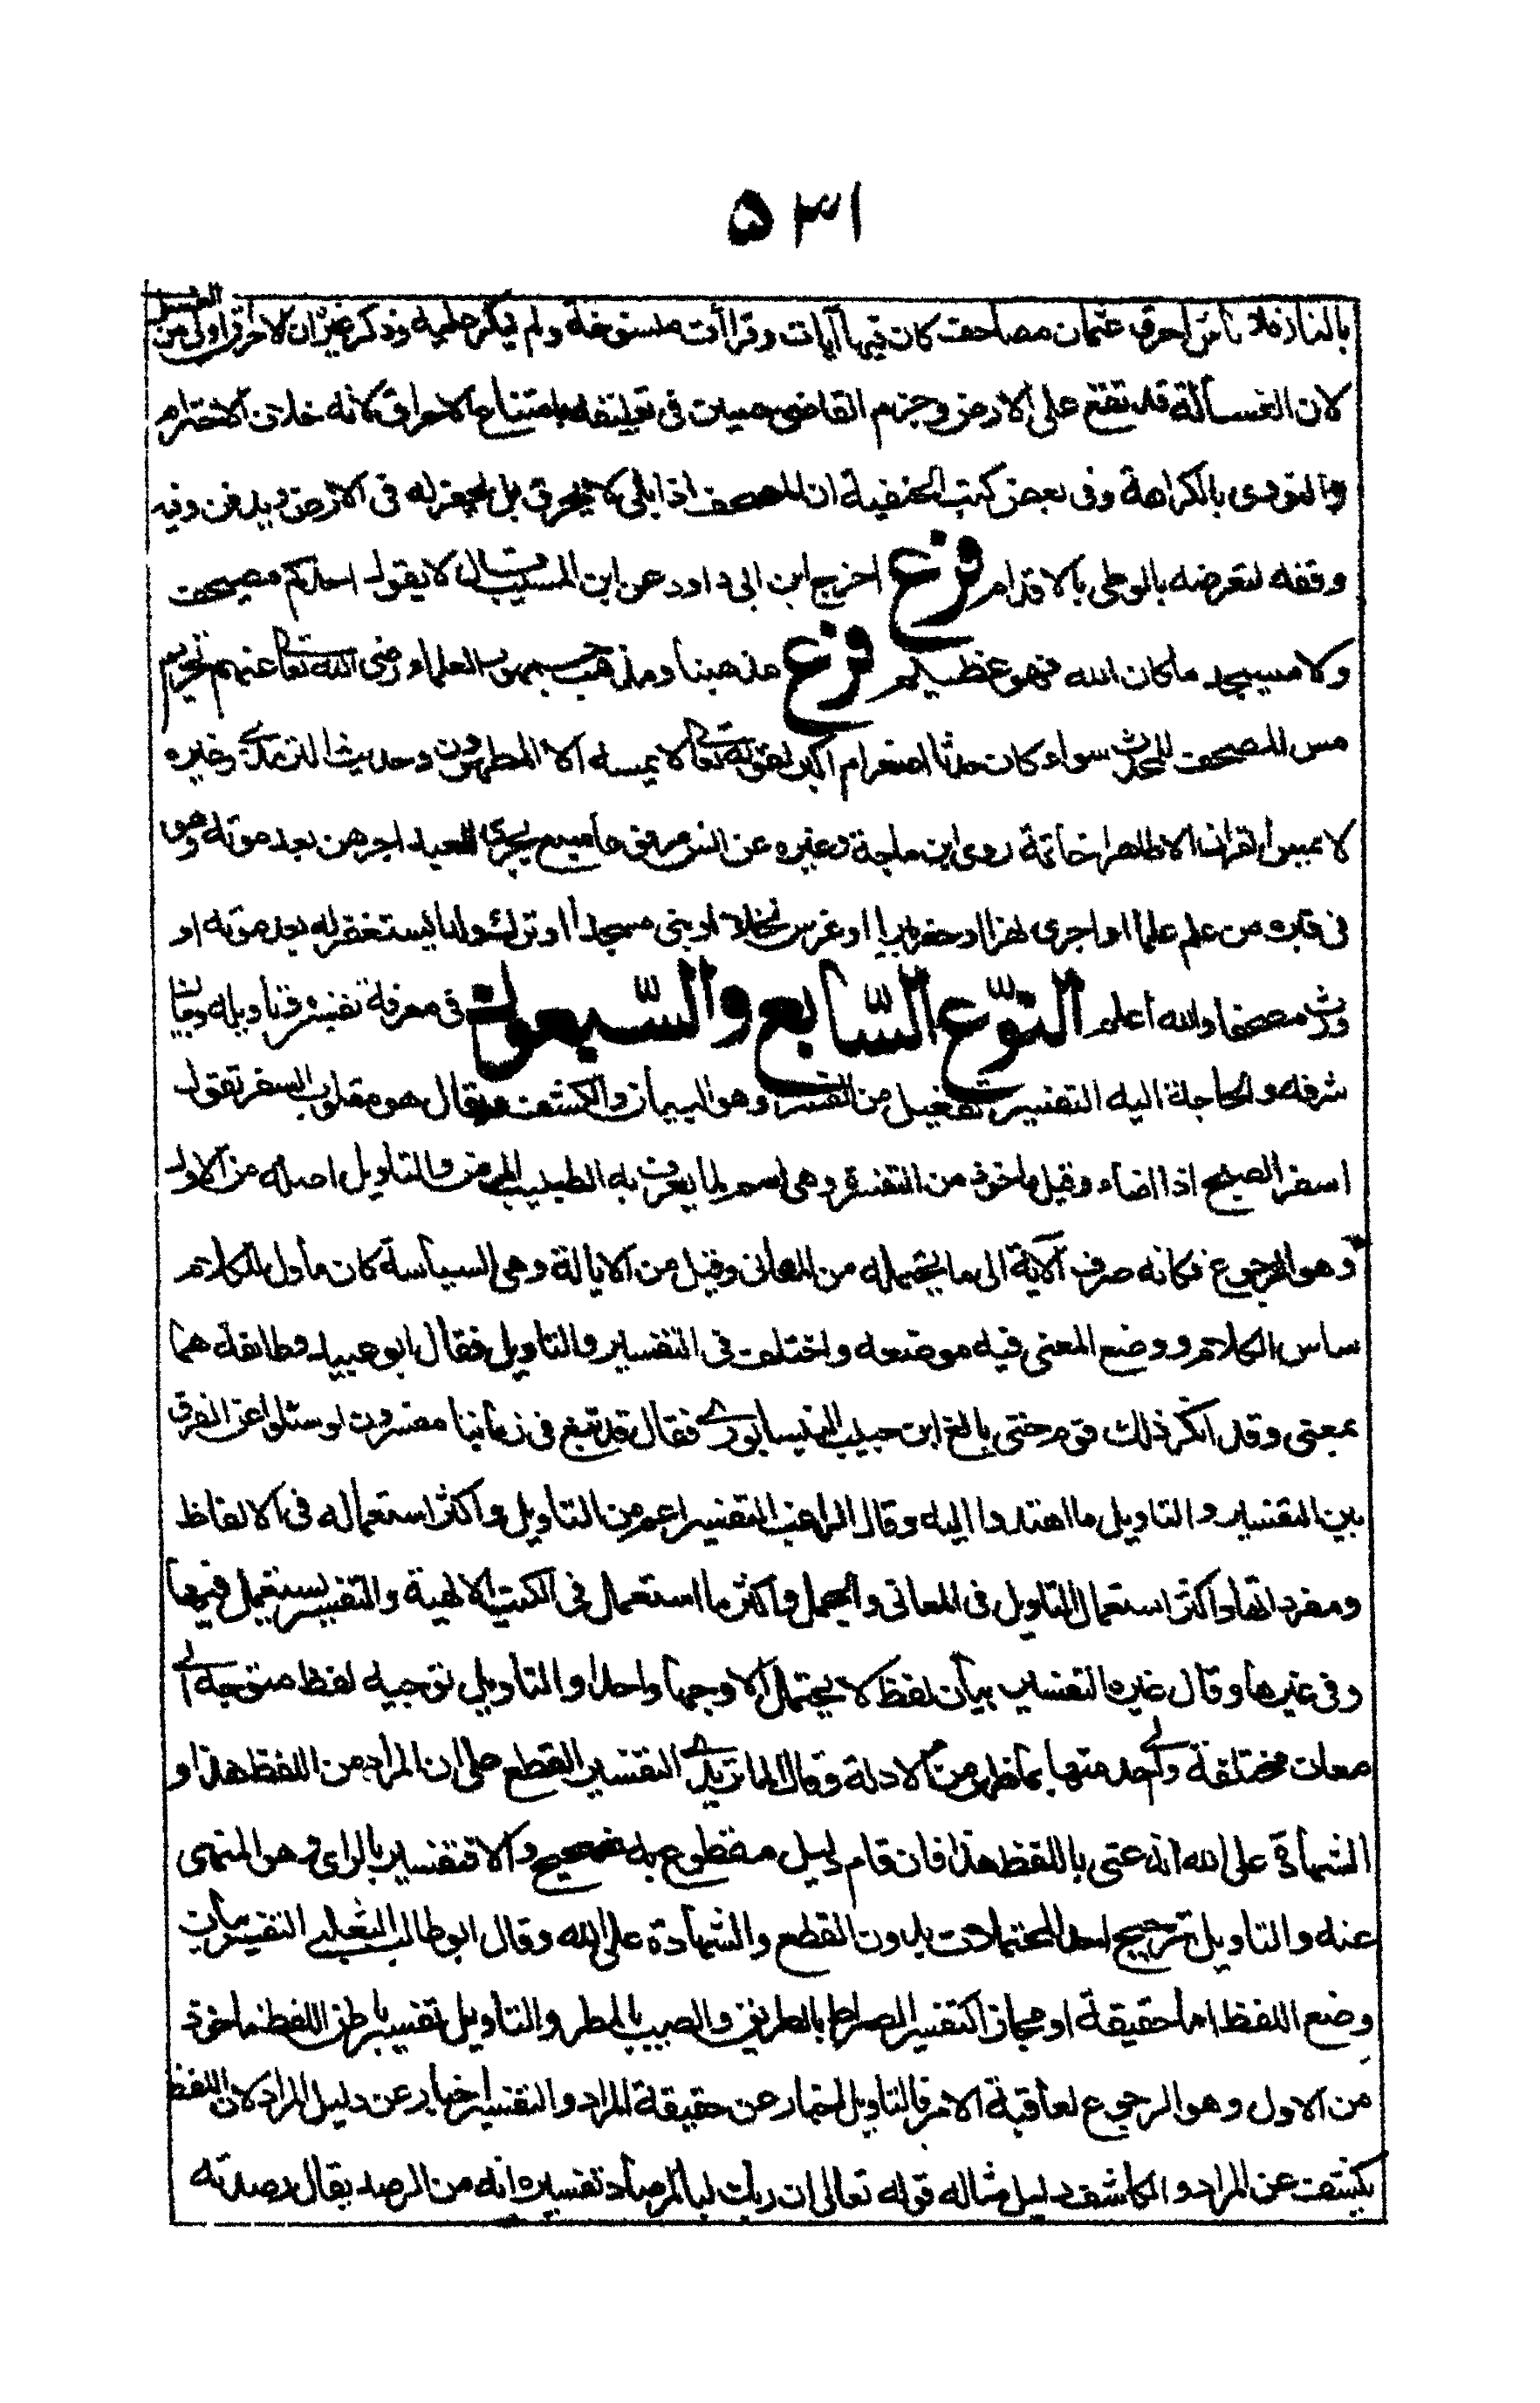 ۵۳۱
بالنار فلا بأس احرق عثمان مصاحف كان فيها آيات وقراآت منسوخة ولم ينكر عليه وذكر غيره ان الاحراق اولى من الغسل
لان الغسالة قد تقع على الارض وجزم القاضى حسين فى تعليقه بامتناع الاحراق لانه خلاف الاحترام
والنووى بالكراهة وفى بعض كتب الحنفية ان المصحف اذا بلى لا يحرق بل يحفر له فى الارض ويدفن وفيه
وقفة لتعرضه بالوطى بالاقدام فرع اخرج ابن ابى داود عن ابن المسيب قال لا يقول احدكم مصيحف
ولا مسيجد ما كان الله فهو عظيم فرع مذهبنا ومذهب جمهور العلماء رضى الله تعا عنهم تحريم
مس المصحف للمحدث سواء كان حدثا اصغر ام اكبر لقوله تعا لا يمسه الا المطهرون وحديث الترمذى وغيره
لا يمس القران الا طاهر خاتمة روى ابن ماجة وغيره عن انس مرفوعا سبع يجرى للعبد اجرهن بعد موته وهو
فى قبره من علم علما او اجرى نهرا او حفر بيرا او غرس نخلا او بنى مسجدا او ترك ولدا يستغفر له بعد موته او
ورث مصحفا والله اعلم النّوع السّابع والسّبعون فى معرفة تفسيره وتاويله وبيان
شرفه والحاجة اليه التفسير تفعيل من الفسر وهو البيان والكشف ويقال هو مقلوب السفر تقول
اسفر الصبح اذا اضاء وقيل ماخوذ من التفسرة وهى اسم لما يعرف به الطبيب المرض والتاويل اصله من الاول
وهو الرجوع فكانه صرف الآية الى ما تحتمله من المعانى وقيل من الايالة وهى السياسة كان مأول الكلام
ساس الكلام ووضع المعنى فيه موضعه واختلف فى التفسير والتاويل فقال ابو عبيد وطائفة هما
بمعنى وقد انكر ذلك قوم حتى بالغ ابن حبيب النيسابورى فقال قد نبغ فى زماننا مفسرون لو سئلوا عن الفرق
بين التفسير والتاويل ما اهتدوا اليه وقال الراغب التفسير اعم من التاويل واكثر استعماله فى الالفاظ
ومفرداتها واكثر استعمال التاويل فى المعانى والجمل واكثر ما استعمل فى الكتب الالهية والتفسير يستعمل فيها
وفى غيرها وقال غيره التفسير بيان لفظ لا يحتمل الا وجها واحدا والتاويل توجيه لفظ متوجه الى
معان مختلفة الى واحد منها بما ظهر من الادلة وقال الماتريدى التفسير القطع على ان المراد من اللفظ هذا و
الشهادة على الله انه عنى باللفظ هذا فان قام دليل مقطوع به فصحيح والا فتفسير بالراى وهو المنهى
عنه والتاويل ترجيح احد المحتملات بدون القطع والشهادة على الله وقال ابو طالب الثعلبى التفسير بيان
وضع اللفظ اما حقيقة او مجازا كتفسير الصراط بالطريق والصيب بالمطر والتاويل تفسير باطن اللفظ ماخوذ
من الاول وهو الرجوع لعاقبة الامر فالتاويل اخبار عن حقيقة المراد والتفسير اخبار عن دليل المراد لان اللفظ
يكشف عن المراد والكاشف دليل مثاله قوله تعالى ان ربك لبالمرصاد تفسيره انه من الرصد يقال رصدته